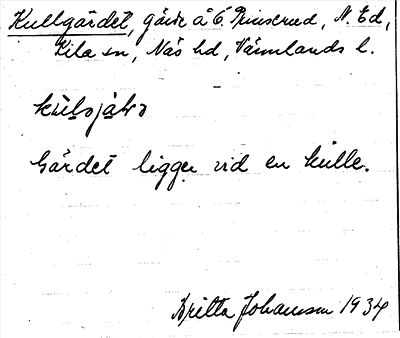 Kullgärdet, gärde å 6 Prinserud, N. Ed,
Kila sn, Näs hd, Värmlands l.
Gärdet ligger vid en kulle.
Britta Johansson 1934